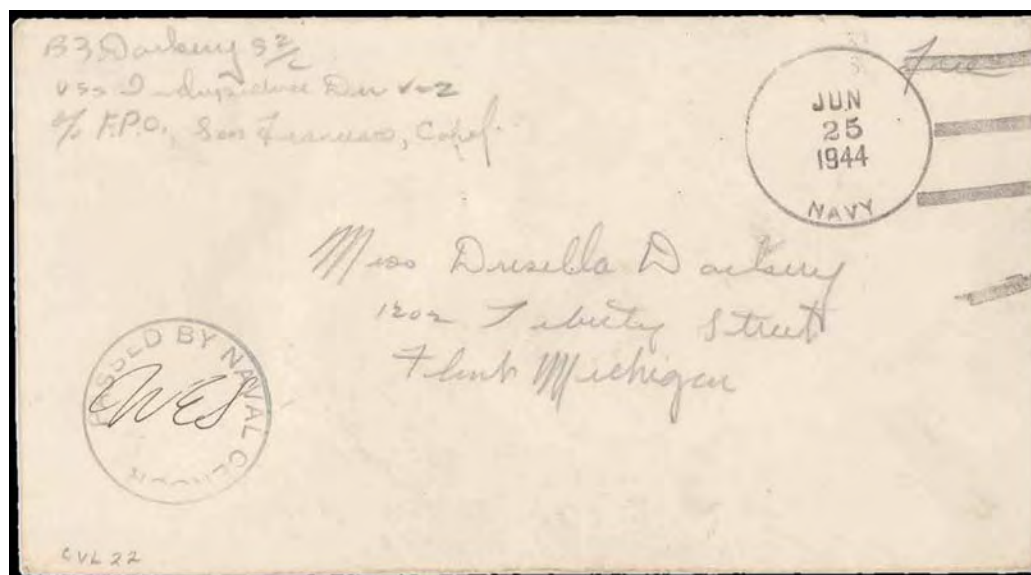 B3 Darbery S 2/c
USS Independence Div V-2
c/o F.P.O., San Francisco, Calif.
Free
JUN
25
1944
NAVY
Miss Drusilla Darbery
1202 Liberty Street
Flint Michigan
PASSED BY NAVAL CENSOR
WES
CVL 22